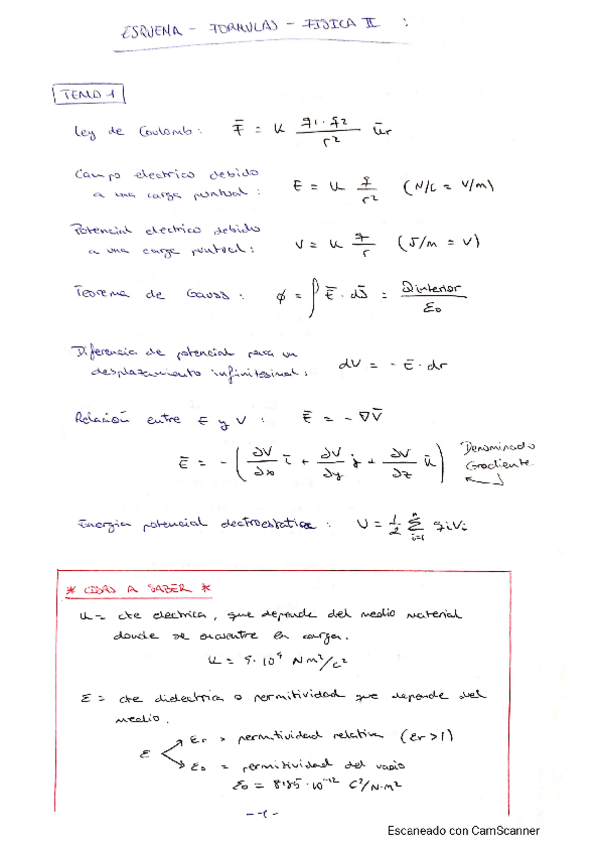 ESQUEMA - FORMULAS - FISICA II :
TEMA 1
Ley de Coulomb: F̄ = K q1·q2 / r² ūr
Campo electrico debido
a una carga puntual: E = K q / r² (N/C = V/m)
Potencial electrico debido
a una carga puntual: V = K q / r (J/m = V)
Teorema de Gauss: ϕ = ∫ Ē · dS̄ = Qinterior / ε0
Diferencia de potencial para un
desplazamiento infinitesimal: dV = - Ē · dr
Relación entre E y V : Ē = - ∇V̄
Ē = - ( ∂V/∂x ī + ∂V/∂y j + ∂V/∂z k̄ ) Denominado
Gradiente.
Energia potencial electrostatica : U = 1/2 Σ i=1 n qiVi
* COSAS A SABER *
K = cte electrica, que depende del medio material
donde se encuentre la carga.
K = 9·10⁹ Nm²/C²
ε = cte dielectrica o permitividad que depende del
medio.
ε
εr = permitividad relativa (εr > 1)
ε0 = permitividad del vacio
ε0 = 8'85·10⁻¹² C²/N·m²
-1-
Escaneado con CamScanner